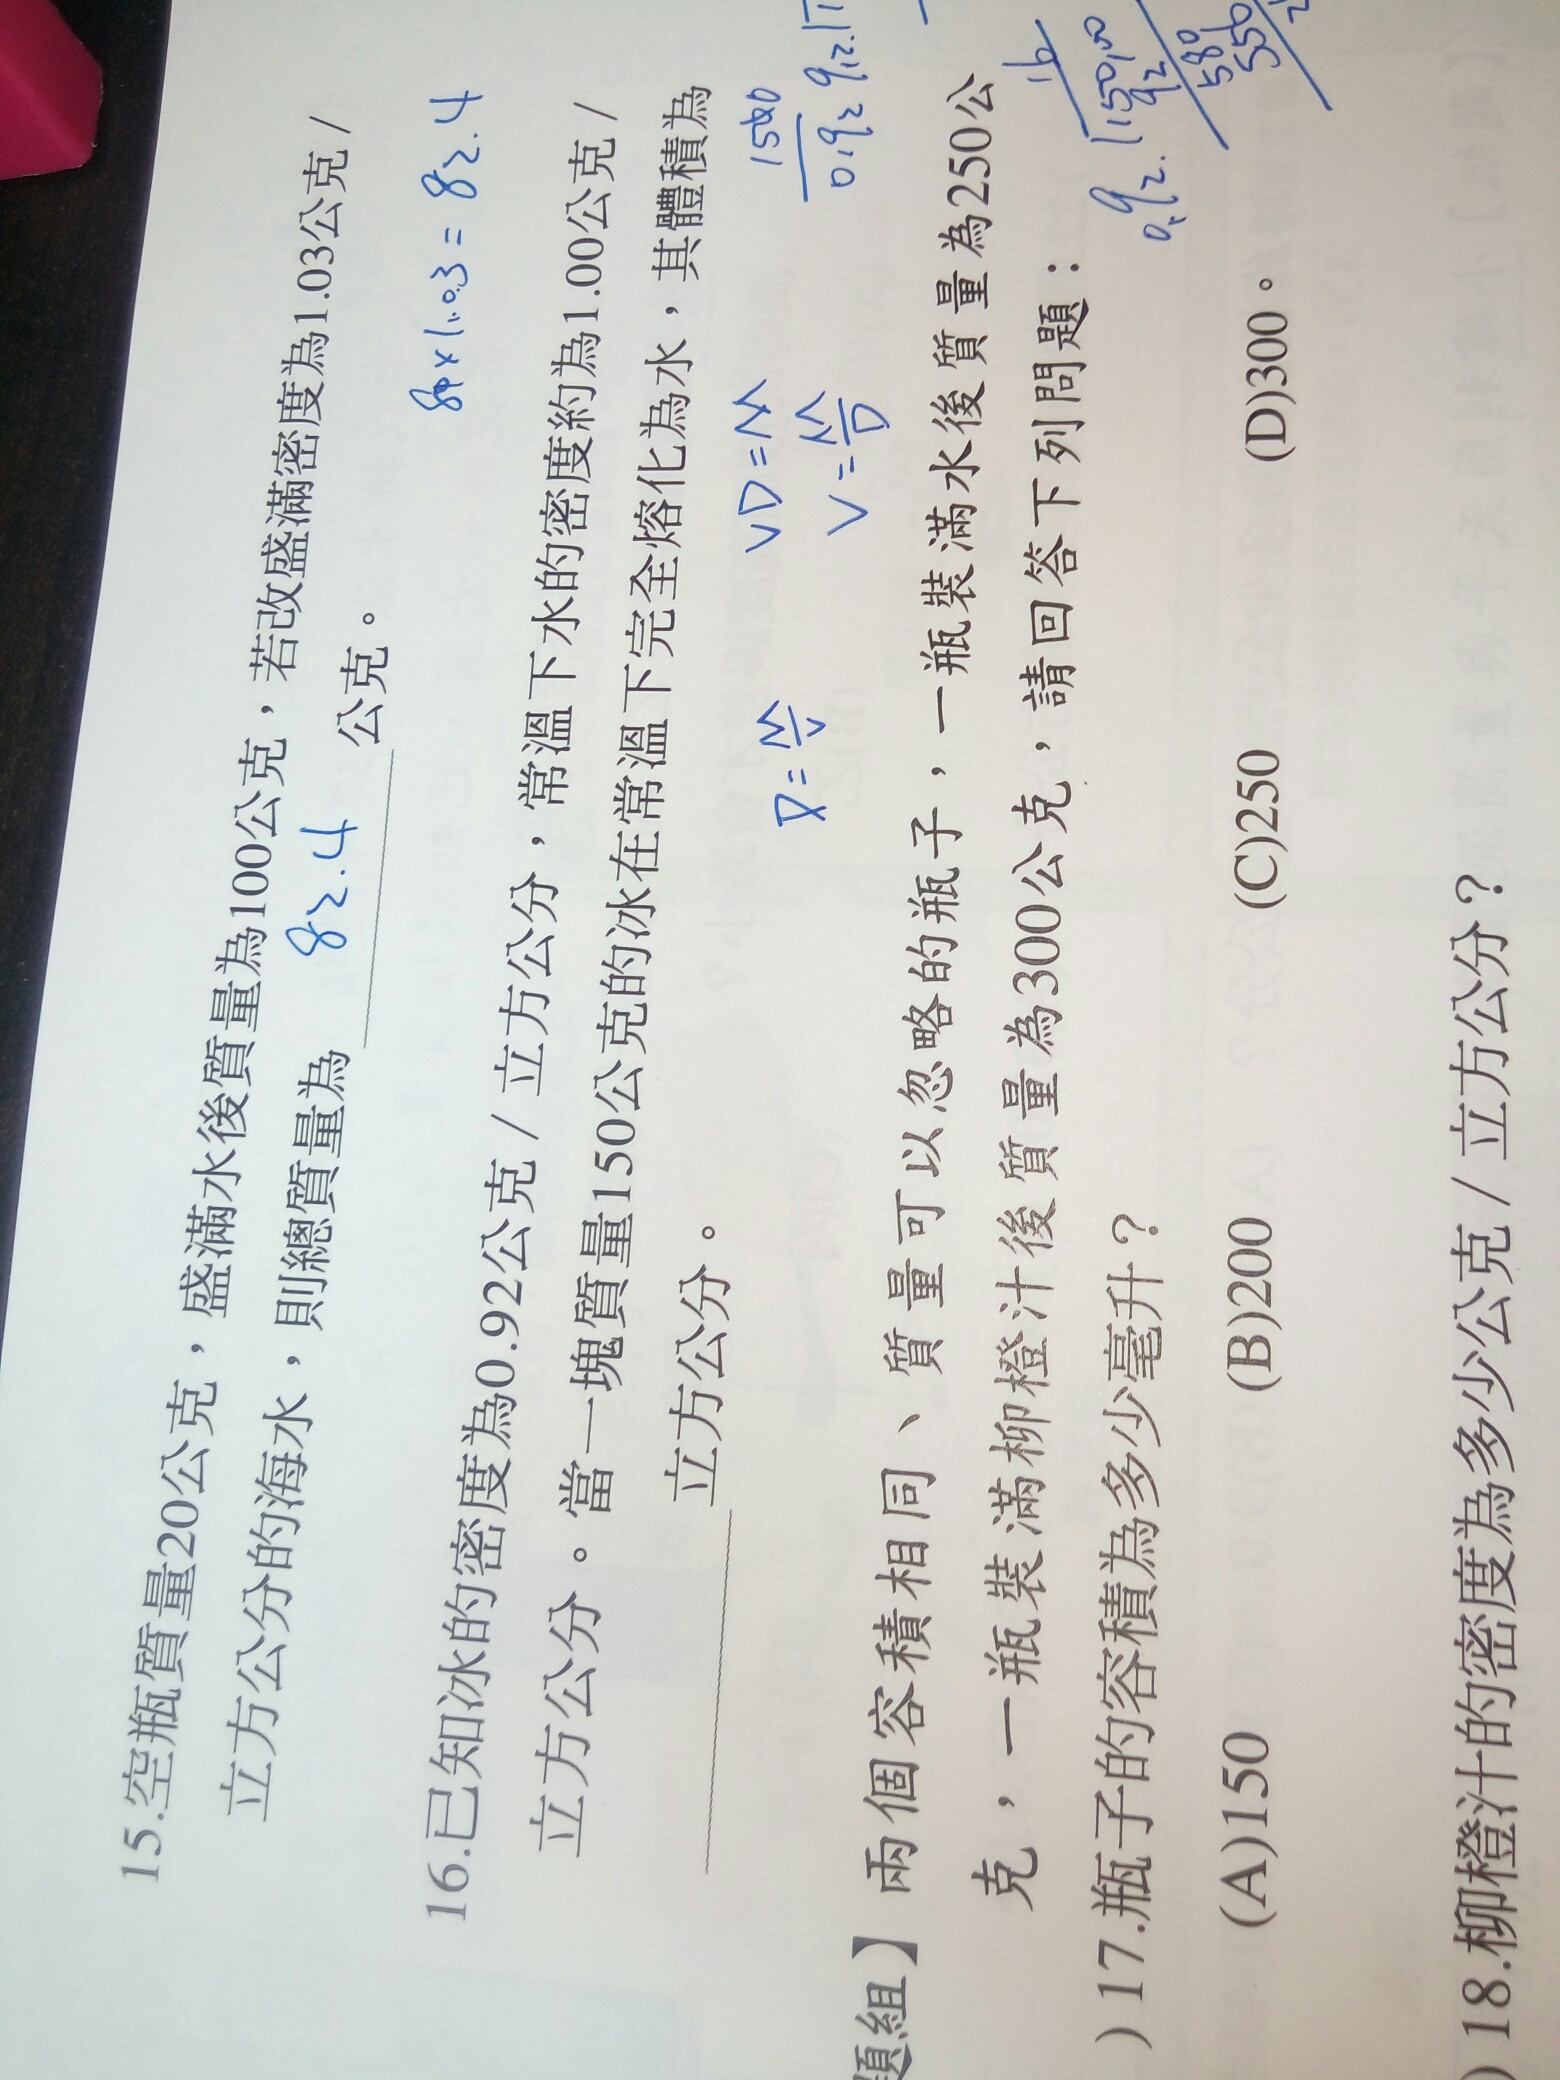 15.空瓶質量20公克，盛滿水後質量為100公克，若改盛滿密度為1.03公克/
立方公分的海水，則總質量為 82.4 公克。
80×1.03=82.4
16.已知冰的密度為0.92公克/立方公分，常溫下水的密度約為1.00公克/
立方公分。當一塊質量150公克的冰在常溫下完全熔化為水，其體積為
立方公分。
D=M/V
VD=M
V=M/D
題組】兩個容積相同、質量可以忽略的瓶子，一瓶裝滿水後質量為250公
克，一瓶裝滿柳橙汁後質量為300公克，請回答下列問題：
)17.瓶子的容積為多少毫升？
(A)150 (B)200 (C)250 (D)300。
)18.柳橙汁的密度為多少公克/立方公分？